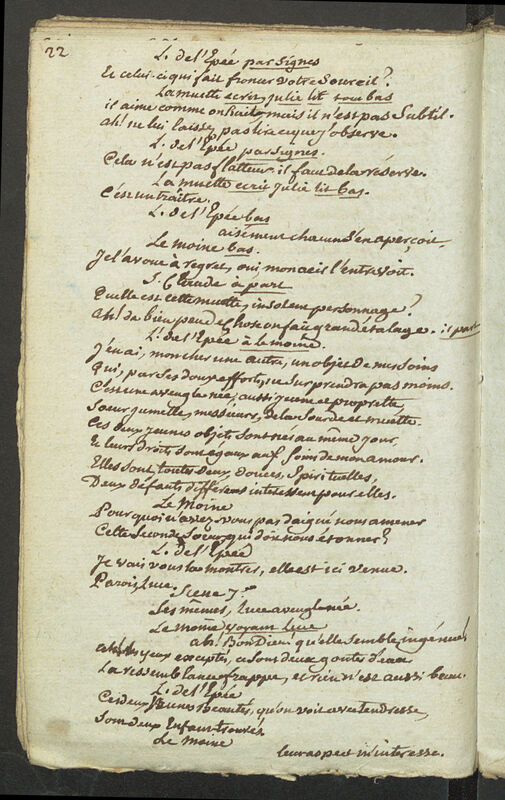 22
L. de l'Epée par Signes
Et celui-ci qui fait froncer votre Sourcil?
La muette ecrit, julie lit tout bas
il aime comme on hait, mais il n'est pas Subtil.
ah! ne lui laissez pas lire ce que j'observe.
L. de l'Epée par Signes.
Cela n'est pas flatteur. il faut de la réserve.
La muette ecrit julie lit bas.
C'est un traître.
L. de l'Epée bas
aisément chacun s'en aperçoit.
Le moine bas.
Je l'avoue à regret, oui mon oeil l'entrevoit.
S. Claude à part
Quelle est cette muette, insolent personnage?
ah! de bien peu de chose on fait grand étalage. il part
L. de l'Epée à le moine.
J'en ai, mon cher une autre, un objet de mes Soins
Qui, par Ses doux efforts, ne Surprendra pas moins.
C'est une aveugle née, aussi jeune et proprette,
Soeur jumelle, messieurs, de la Sourde et muette.
Ces deux jeunes objets Sont nés au même jour,
Et leurs droits Sont égaux aux Soins de mon amour.
Elles Sont toutes deux, douces, Spirituelles,
Deux défauts différens intéressent pour elles.
Le Moine
Pourquoi n'avez-vous pas daigné nous amener
Cette Seconde Soeur qui doit nous étonner?
L. de l'Epée
Je vais vous la montrer, elle est ici venue.
Parois, Luce.
Scene 7.e
Les mêmes, Luce aveugle née.
Le moine voyant Luce
ah! Bon Dieu! qu'elle semble ingénue!
ah! les yeux exceptés, ce Sont deux goutes d'eau
La ressemblance frappe, et rien n'est aussi beau.
L. de l'Epée
Ces deux jeunes Beautés, qu'on voit avec tendresse,
Sont deux Enfans trouvés.
Le Moine
leur aspect m'intéresse.